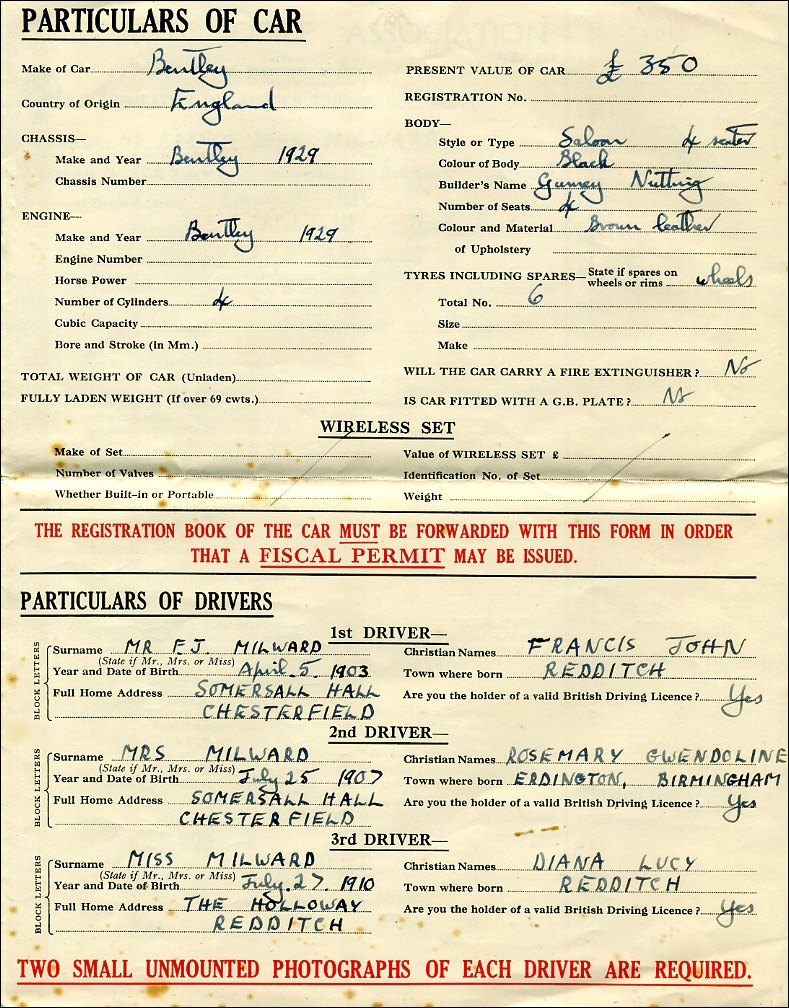 PARTICULARS OF CAR
Make of Car Bentley
Country of Origin England
CHASSIS—
Make and Year Bentley 1929
Chassis Number
ENGINE—
Make and Year Bentley 1929
Engine Number
Horse Power
Number of Cylinders 4
Cubic Capacity
Bore and Stroke (in Mm.)
TOTAL WEIGHT OF CAR (Unladen)
FULLY LADEN WEIGHT (If over 69 cwts.)
PRESENT VALUE OF CAR £ 350
REGISTRATION No.
BODY—
Style or Type Saloon 4 seater
Colour of Body Black
Builder's Name Gurney Nutting
Number of Seats 4
Colour and Material Brown leather
of Upholstery
TYRES INCLUDING SPARES— State if spares on wheels or rims wheels
Total No. 6
Size
Make
WILL THE CAR CARRY A FIRE EXTINGUISHER? No
IS CAR FITTED WITH A G.B. PLATE? No
WIRELESS SET
Make of Set
Number of Valves
Whether Built-in or Portable
Value of WIRELESS SET £
Identification No. of Set
Weight
THE REGISTRATION BOOK OF THE CAR MUST BE FORWARDED WITH THIS FORM IN ORDER
THAT A FISCAL PERMIT MAY BE ISSUED.
PARTICULARS OF DRIVERS
1st DRIVER—
BLOCK LETTERS
Surname MR F.J. MILWARD
(State if Mr., Mrs. or Miss)
Year and Date of Birth April. 5. 1903
Full Home Address SOMERSALL HALL
CHESTERFIELD
Christian Names FRANCIS JOHN
Town where born REDDITCH
Are you the holder of a valid British Driving Licence? Yes
2nd DRIVER—
BLOCK LETTERS
Surname MRS MILWARD
(State if Mr., Mrs. or Miss)
Year and Date of Birth July 25 1907
Full Home Address SOMERSALL HALL
CHESTERFIELD
Christian Names ROSEMARY GWENDOLINE
Town where born ERDINGTON, BIRMINGHAM
Are you the holder of a valid British Driving Licence? Yes
3rd DRIVER—
BLOCK LETTERS
Surname MISS MILWARD
(State if Mr., Mrs. or Miss)
Year and Date of Birth July. 27. 1910
Full Home Address THE HOLLOWAY
REDDITCH
Christian Names DIANA LUCY
Town where born REDDITCH
Are you the holder of a valid British Driving Licence? Yes
TWO SMALL UNMOUNTED PHOTOGRAPHS OF EACH DRIVER ARE REQUIRED.